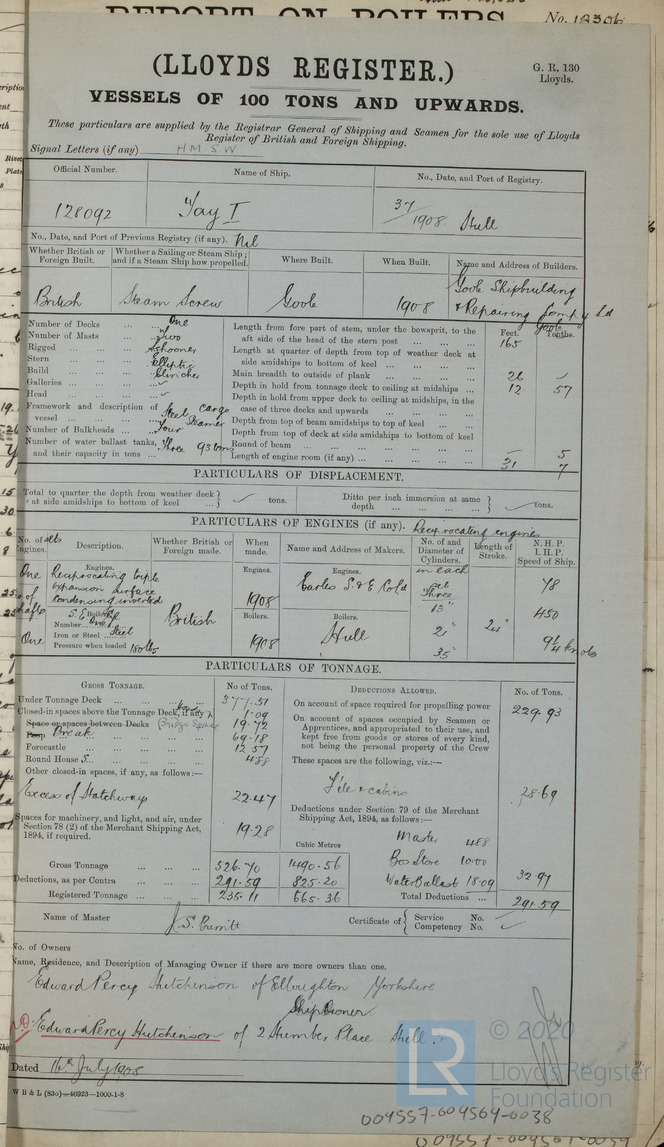 REPORT ON BOILERS No. 18306
(LLOYDS REGISTER.)
G. R. 130
Lloyds.
VESSELS OF 100 TONS AND UPWARDS.
These particulars are supplied by the Registrar General of Shipping and Seamen for the sole use of Lloyds
Register of British and Foreign Shipping.
Signal Letters (if any) H M S W
Official Number. Name of Ship. No., Date, and Port of Registry.
128092 "Tay I" 37/1908. Hull
No., Date, and Port of Previous Registry (if any). Nil
Whether British or Foreign Built. Whether a Sailing or Steam Ship; and if a Steam Ship how propelled. Where Built. When Built. Name and Address of Builders.
British Steam Screw Goole 1908 Goole Shipbuilding & Repairing Compy Ld Goole
Number of Decks ... ... One
Number of Masts ... ... Two
Rigged ... ... Schooner
Stern ... ... Elliptic
Build ... ... Clincher
Galleries ... ... ✓
Head ... ... ✓
Framework and description of vessel ... Steel Cargo Steamer
Number of Bulkheads ... Four
Number of water ballast tanks, and their capacity in tons ... Three 93 tons
Feet. Tenths.
Length from fore part of stem, under the bowsprit, to the aft side of the head of the stern post ... 165
Length at quarter of depth from top of weather deck at side amidships to bottom of keel ...
Main breadth to outside of plank ... 26 ✓
Depth in hold from tonnage deck to ceiling at midships ... 12 57
Depth in hold from upper deck to ceiling at midships, in the case of three decks and upwards ...
Depth from top of beam amidships to top of keel ...
Depth from top of deck at side amidships to bottom of keel
Round of beam ... – 5
Length of engine room (if any) ... 31 7
PARTICULARS OF DISPLACEMENT.
Total to quarter the depth from weather deck at side amidships to bottom of keel ... ✓ tons. Ditto per inch immersion at same depth ... ✓ tons.
PARTICULARS OF ENGINES (if any). Reciprocating engines
No. of sets Engines. Description. Whether British or Foreign made. When made. Name and Address of Makers. No. of and Diameter of Cylinders. Length of Stroke. N. H. P. I. H. P. Speed of Ship.
Engines. Engines. Engines. in each set
One Reciprocating triple expansion surface condensing inverted
British 1908 Earles S & E Co Ld Three 78
13" 450
Boilers. Boilers. Boilers.
Number One
Iron or Steel Steel
Pressure when loaded 180 lbs
1908 Hull 21" 24" 9¼ knots
35"
One
PARTICULARS OF TONNAGE.
GROSS TONNAGE. No of Tons. DEDUCTIONS ALLOWED. No. of Tons.
Under Tonnage Deck ... 377.51
Closed-in spaces above the Tonnage Deck, if any 1.09
Space or spaces between Decks (Bridge Space) 19.72
Poop Break 69.18
Forecastle ... 12.57
Round House S. ... 4.88
Other closed-in spaces, if any, as follows:—
Excess of Hatchways 22.47
Spaces for machinery, and light, and air, under Section 78 (2) of the Merchant Shipping Act, 1894, if required. 19.28
On account of space required for propelling power 229.93
On account of spaces occupied by Seamen or Apprentices, and appropriated to their use, and kept free from goods or stores of every kind, not being the personal property of the Crew
These spaces are the following, viz.:—
F'cle & cabins 28.69
Deductions under Section 79 of the Merchant Shipping Act, 1894, as follows:—
Master 4.88
Bos Store 10.00
Water Ballast 18.09 32.97
Cubic Metres
Gross Tonnage ... 526.70 1490.56
Deductions, as per Contra ... 291.59 825.20
Registered Tonnage ... 235.11 665.36
Total Deductions ... 291.59
Name of Master J. S. Burritt Certificate of Service No. Competency No. ✓
No. of Owners
Name, Residence, and Description of Managing Owner if there are more owners than one.
Edward Percy Hutchinson of Elloughton Yorkshire
Ship Owner
Edward Percy Hutchinson of 2 Humber Place Hull.
Dated 16th July 1908
W B & L (83o)—46923—1000-1-8
LR
© 2020
Lloyd's Register
Foundation
004557-004564-0038